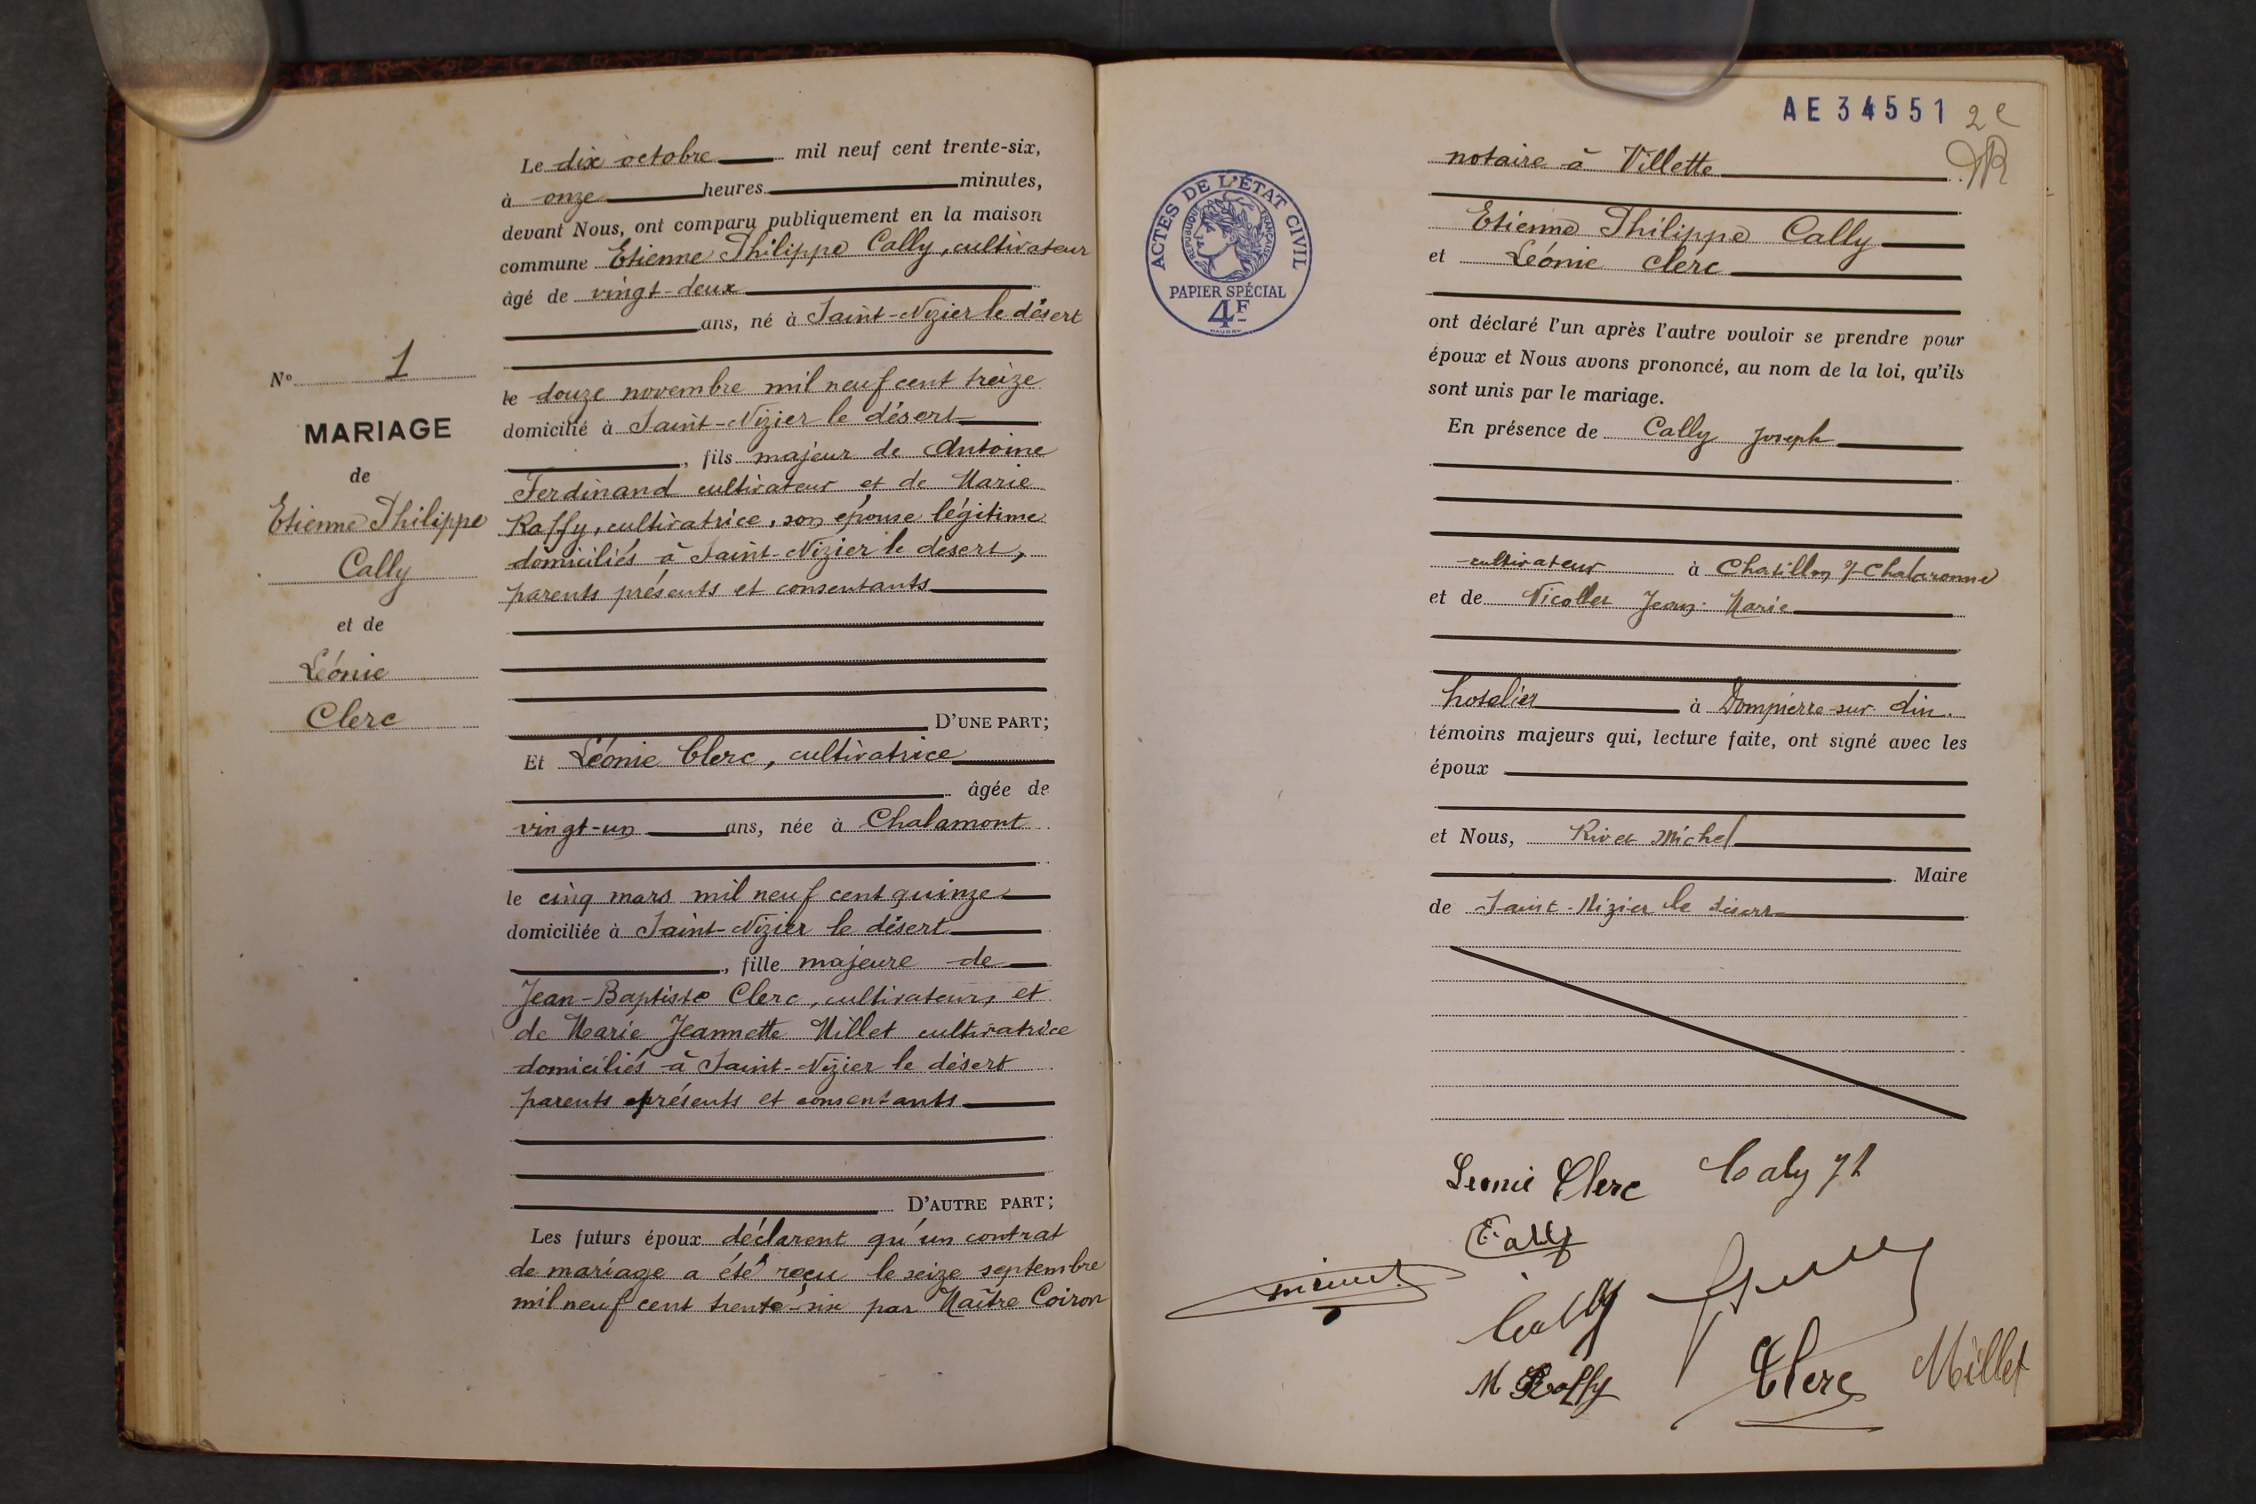 Le dix octobre mil neuf cent trente-six,
à onze heures minutes,
devant Nous, ont comparu publiquement en la maison
commune Etienne Philippe Cally, cultivateur
âgé de vingt-deux
ans, né à Saint-Nizier le désert
le douze novembre mil neuf cent treize
domicilié à Saint-Nizier le désert
, fils majeur de Antoine
Ferdinand cultivateur et de Marie
Raffy, cultivatrice, son épouse légitime
domiciliés à Saint-Nizier le desert,
parents présents et consentants
D'UNE PART;
Et Léonie Clerc, cultivatrice
âgée de
vingt-un ans, née à Chalamont
le cinq mars mil neuf cent quinze
domiciliée à Saint-Nizier le désert
, fille majeure de
Jean-Baptiste Clerc, cultivateur, et
de Marie Jeannette Millet cultivatrice
domiciliés à Saint-Nizier le désert
parents présents et consentants
D'AUTRE PART;
Les futurs époux déclarent qu'un contrat
de mariage a été reçu le seize septembre
mil neuf cent trente-six par Maître Coiron
No 1
MARIAGE
de
Etienne Philippe
Cally
et de
Léonie
Clerc
AE 34551
2e
ACTES DE L'ÉTAT CIVIL
RÉPUBLIQUE FRANÇAISE
PAPIER SPÉCIAL
4F
notaire à Villette
Etienne Philippe Cally
et Léonie Clerc
ont déclaré l'un après l'autre vouloir se prendre pour
époux et Nous avons prononcé, au nom de la loi, qu'ils
sont unis par le mariage.
En présence de Cally Joseph
cultivateur à Chatillon s/-Chalaronne
et de Nicollet Jean-Marie
hotelier à Dompierre-sur
témoins majeurs qui, lecture faite, ont signé avec les
époux
et Nous, Rivet Michel
Maire
de Saint-Nizier le désert
Leonie Clerc
Caly
E. Cally
Cally
M Raffy
Clerc
Millet